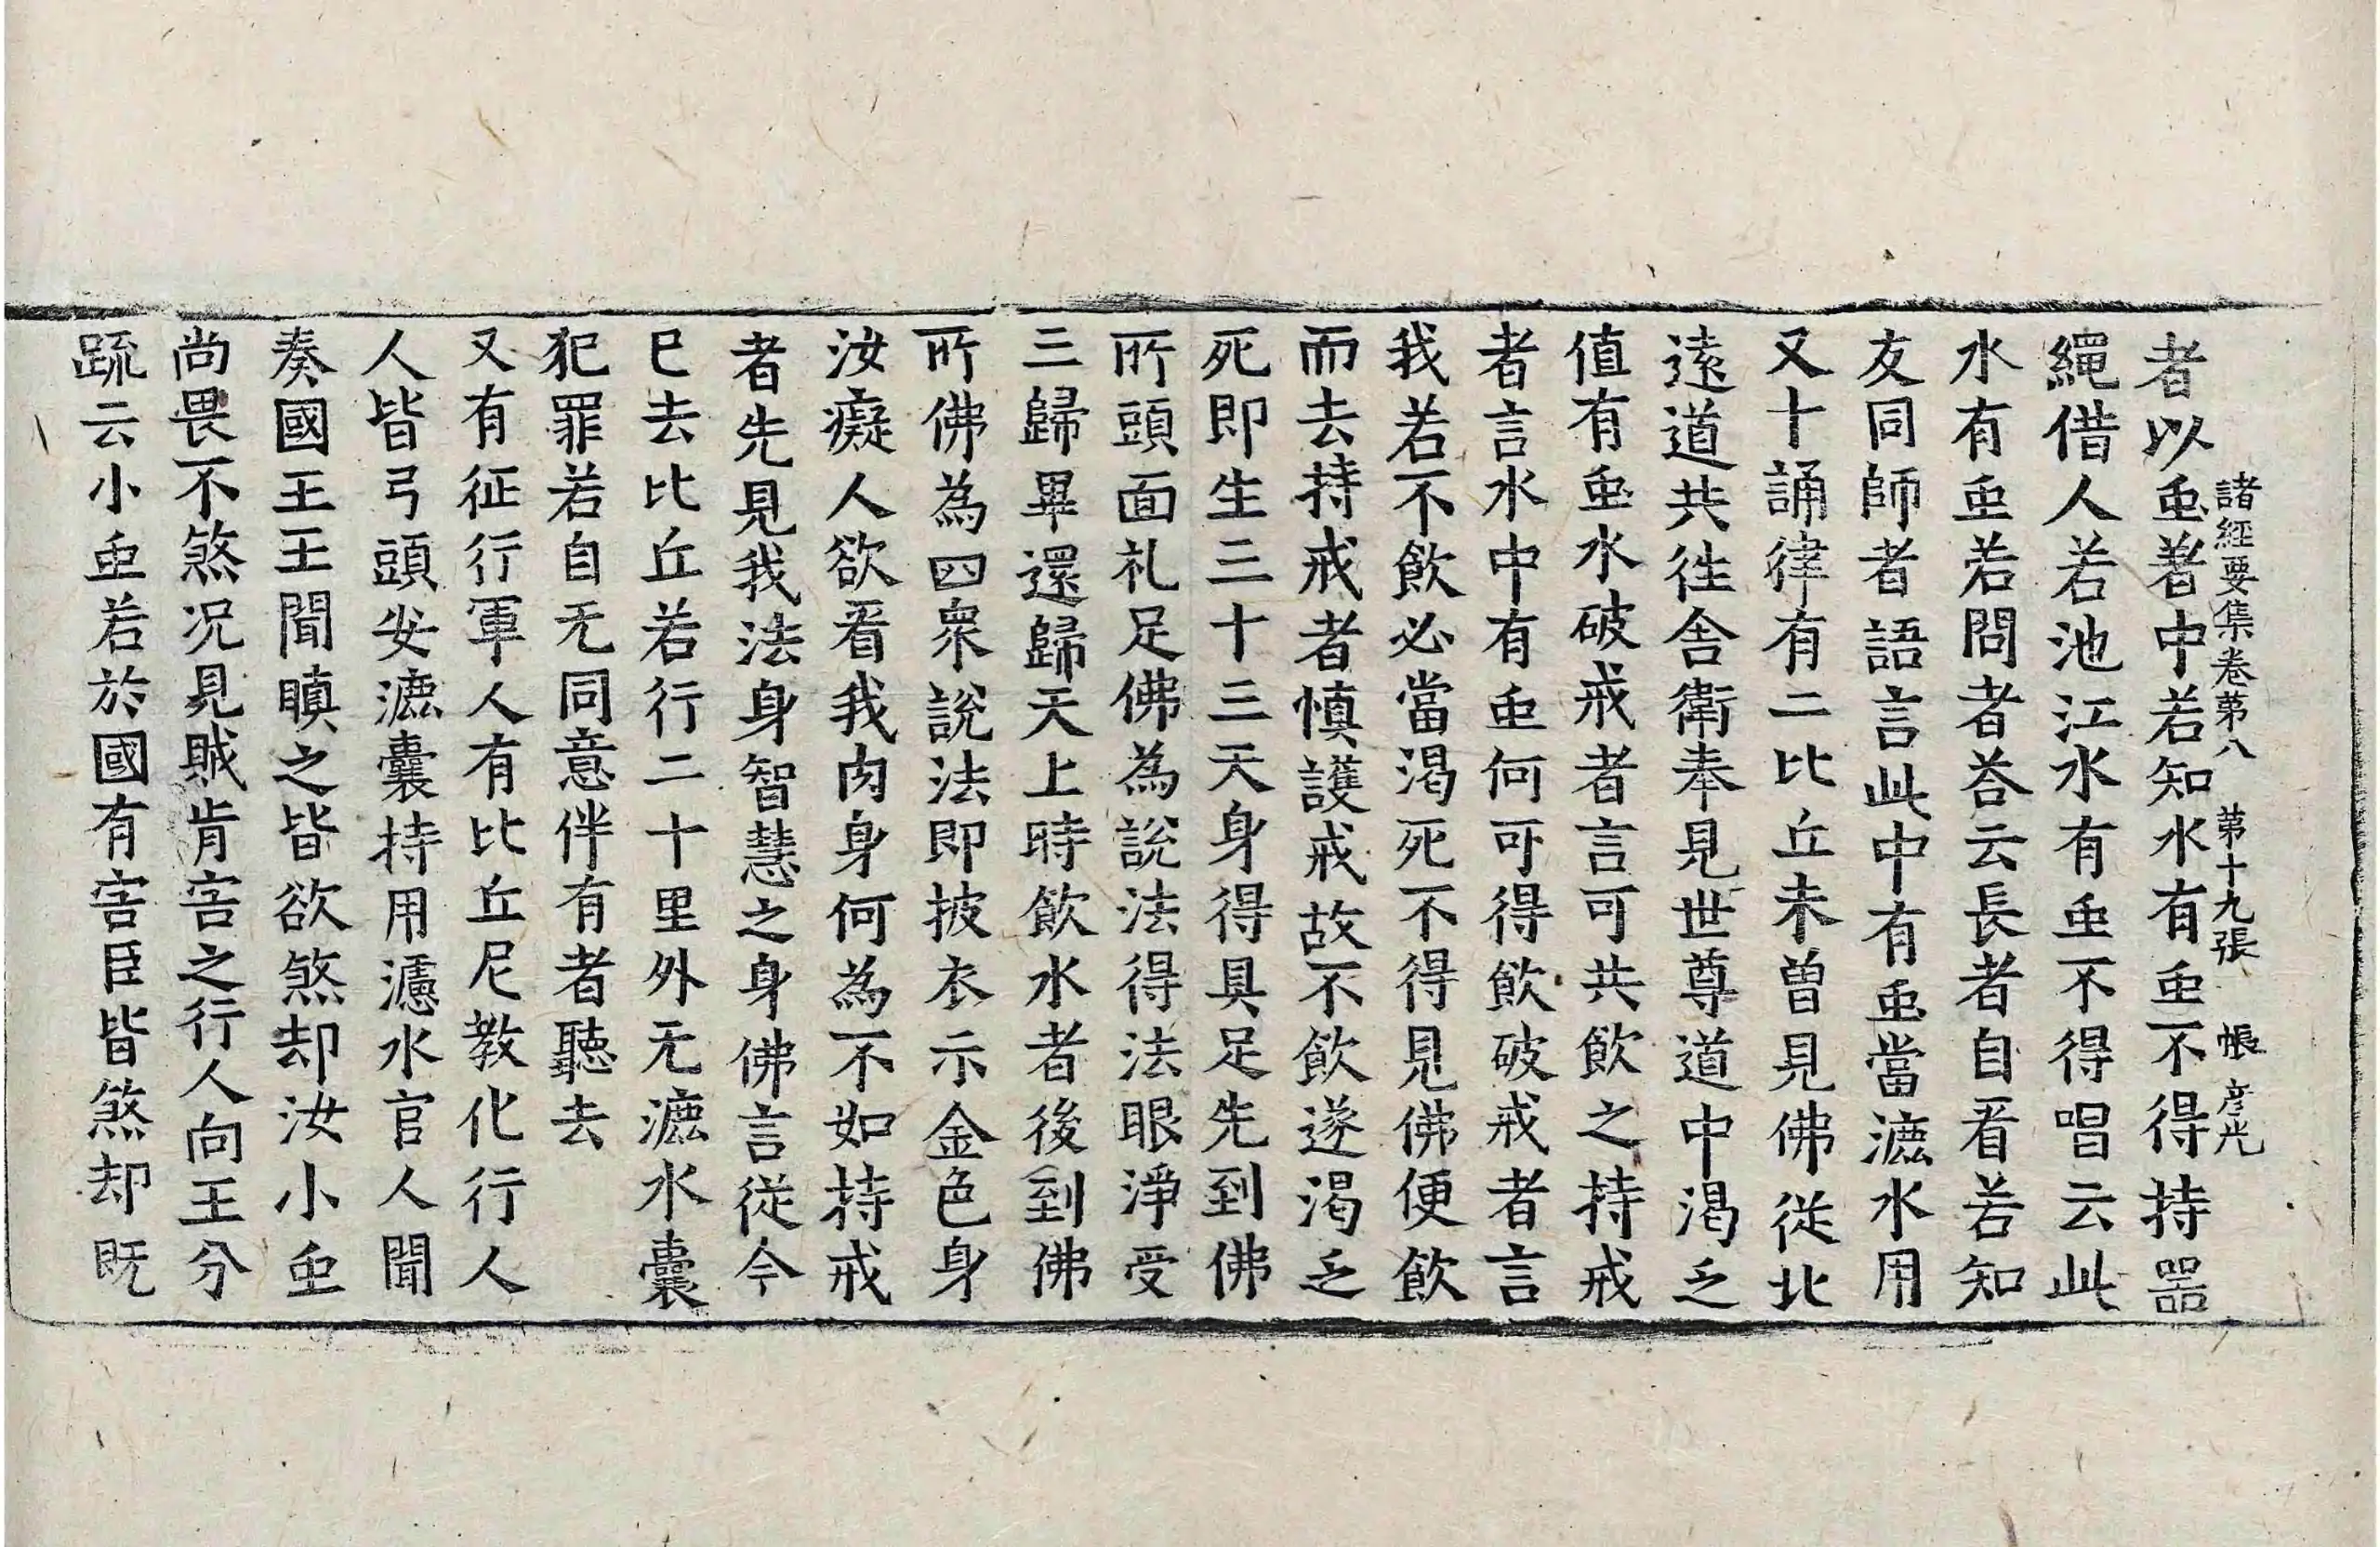 者以䖝著中若知水有䖝不得持器
諸經要集卷苐八　苐十九張　帳　彦光
繩借人若池江水有䖝不得唱云此
水有䖝若問者荅云長者自看若知
友同師者語言此中有䖝當漉水用
又十誦律有二比丘未曾見佛從北
逺道共往舍衛奉見世尊道中渴乏
值有䖝水破戒者言可共飲之持戒
者言水中有䖝何可得飲破戒者言
我若不飲必當渴死不得見佛便飲
而去持戒者慎護戒故不飲遂渴乏
死即生三十三天身得具足先到佛
所頭面礼足佛為說法得法眼淨受
三歸畢還歸天上時飲水者後到佛
所佛為四衆說法即披衣示金色身
汝癡人欲看我肉身何為不如持戒
者先見我法身智慧之身佛言從今
已去比丘若行二十里外无漉水囊
犯罪若自无同意伴有者聽去
又有征行軍人有比丘尼教化行人
人皆弓頭安漉囊持用濾水官人聞
奏國王王聞瞋之皆欲煞却汝小䖝
尚畏不煞况見賊肯害之行人向王分
䟽云小䖝若於國有害臣皆煞却既